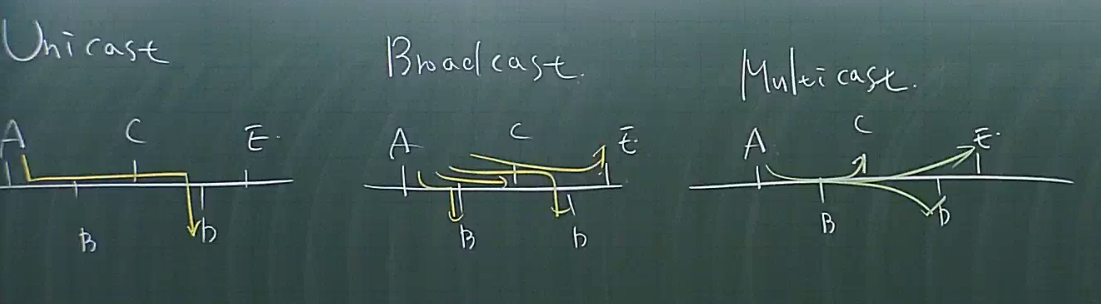 Unicast
A C E
B D
Broadcast.
A C E
B D
Multicast.
A C E
B D